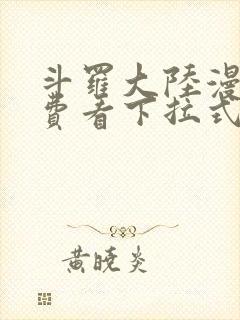 斗羅大陸漫
費看下拉式
黃曉炎